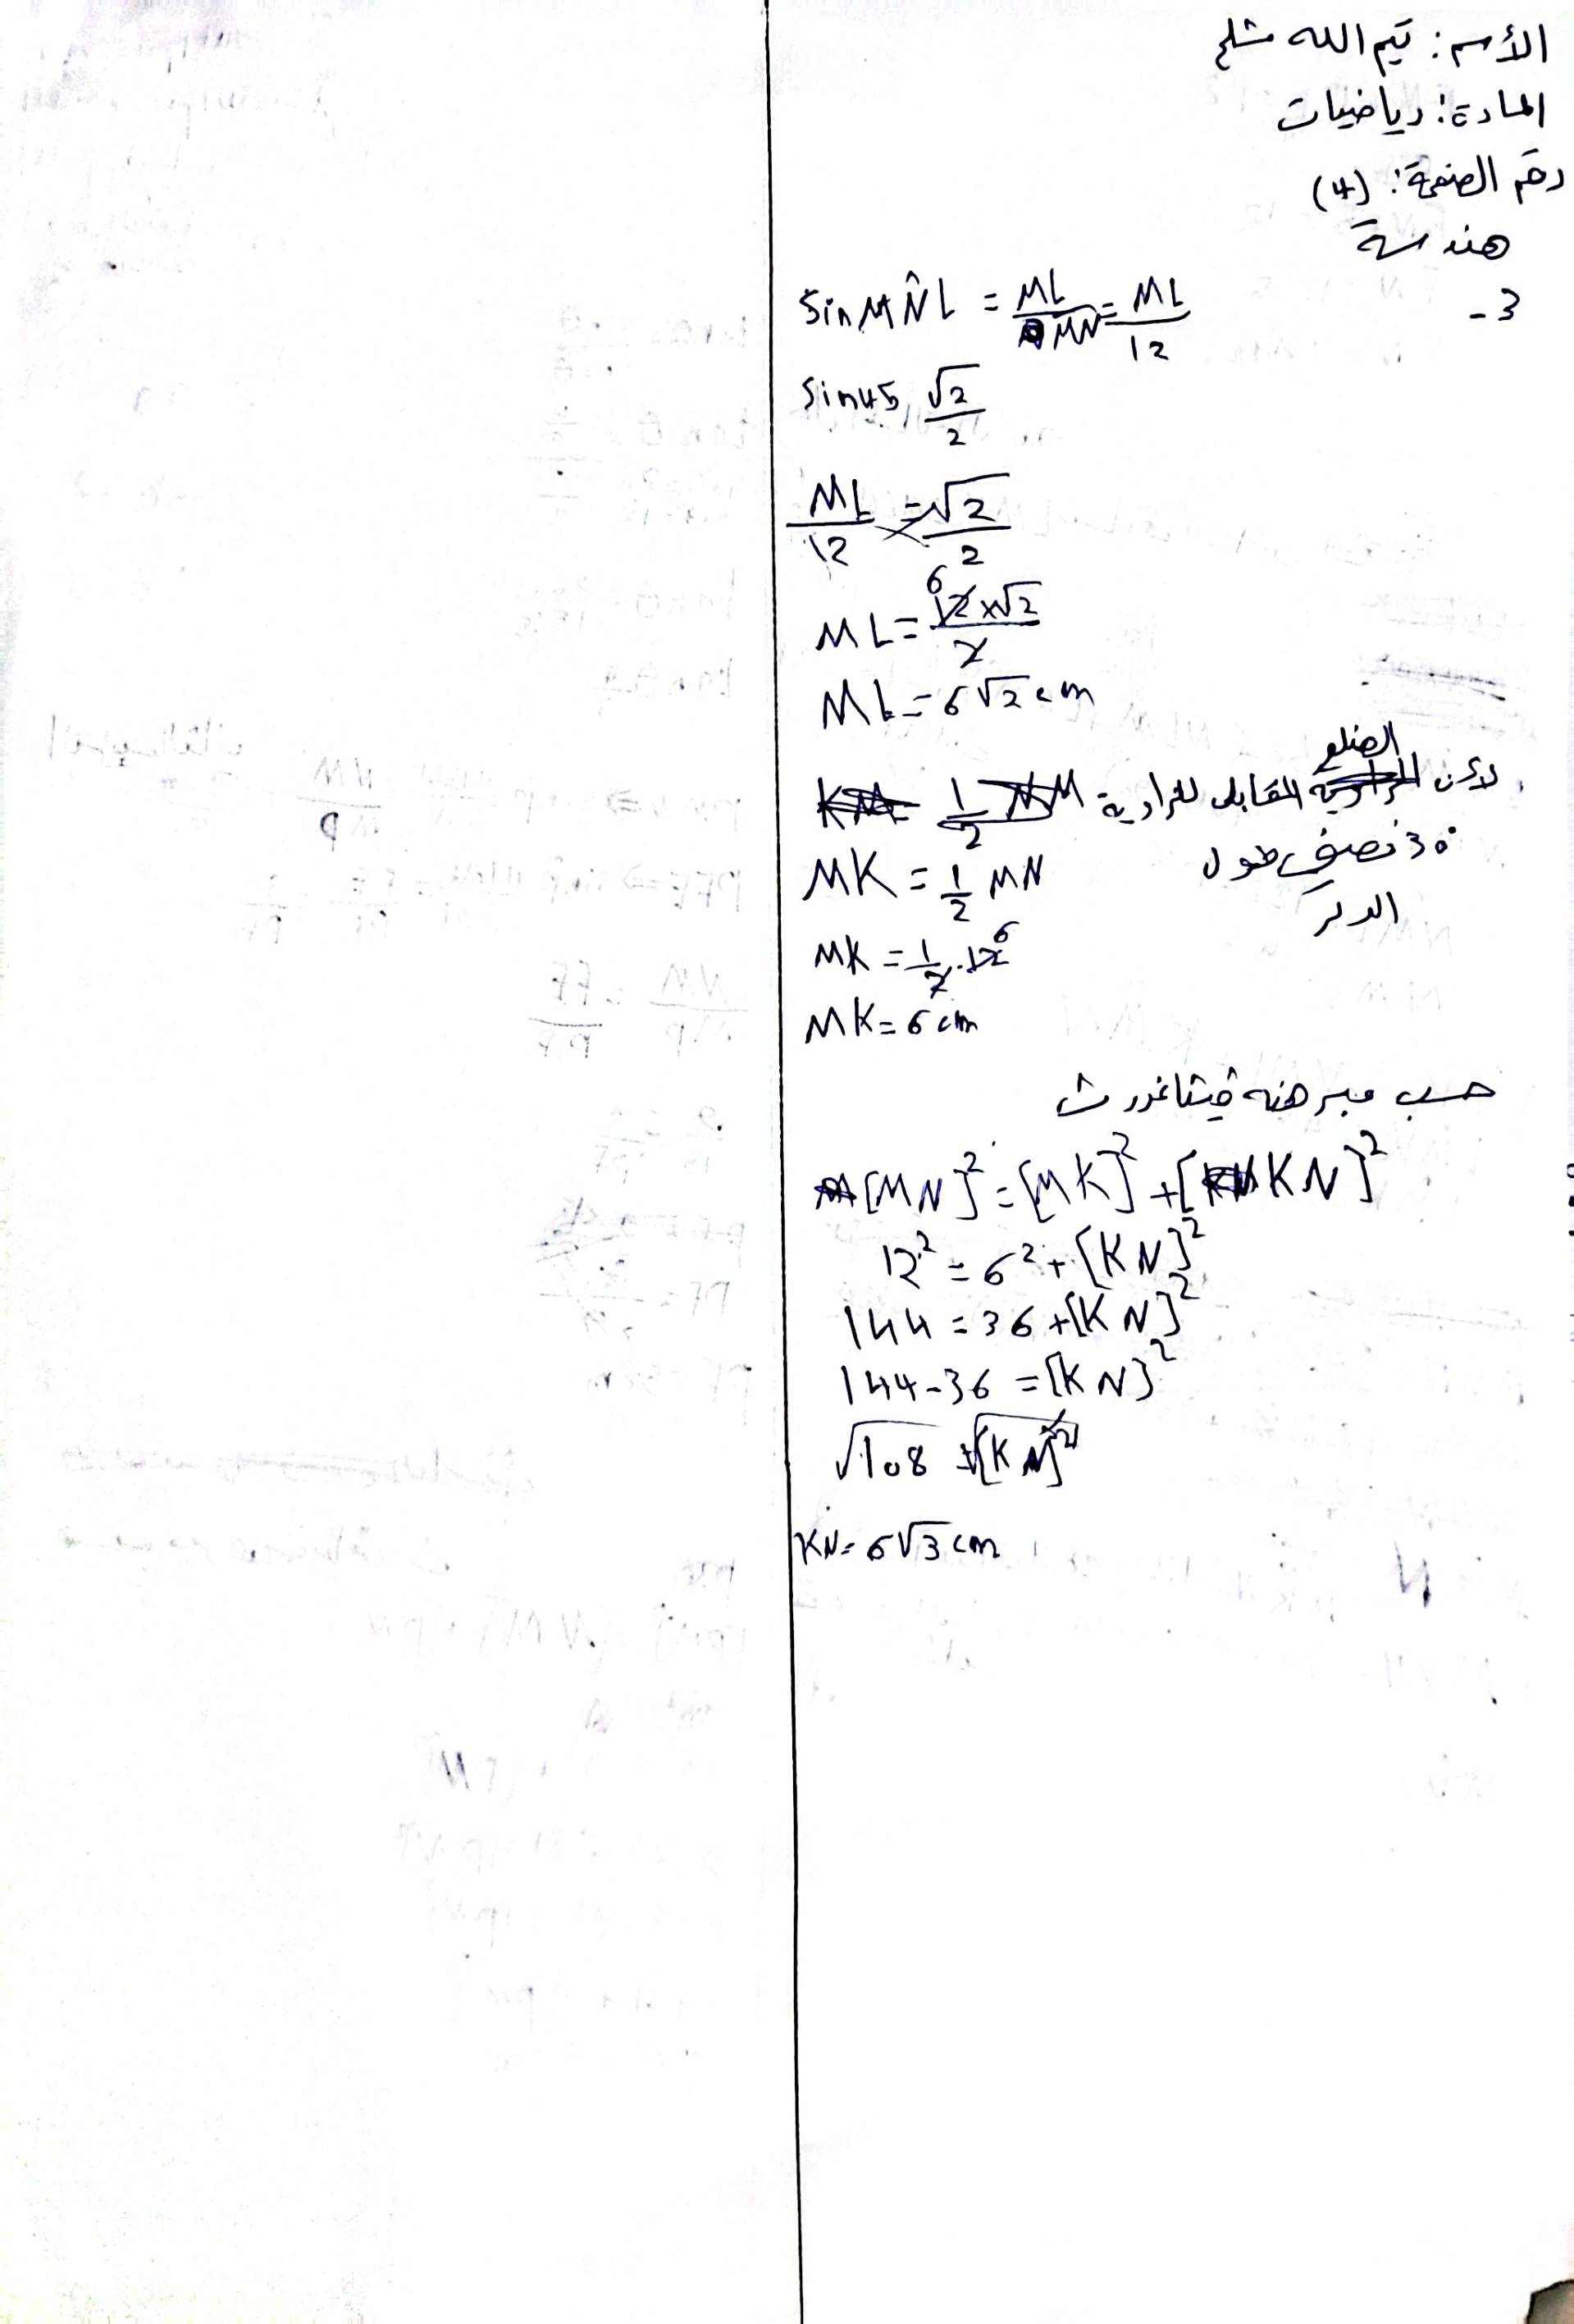 الأسم: تيم الله مشلح
المادة: رياضيات
رقم الصفحة: (4)
هندسة
3-
Sin MN̂L = ML/MN = ML/12
Sin45 √2/2
ML/12 = √2/2
ML = 12×√2/2 6
ML = 6√2 cm
لأن الضلع المقابل للزاوية
30° نصف طول
الوتر
MK = 1/2 MN
MK = 1/2 . 12 6
MK = 6 cm
حسب مبرهنة فيثاغورث
[MN]² = [MK]² + [KN]²
12² = 6² + [KN]²
144 = 36 + [KN]²
144 - 36 = [KN]²
√108 = √[KN]²
KN = 6√3 cm